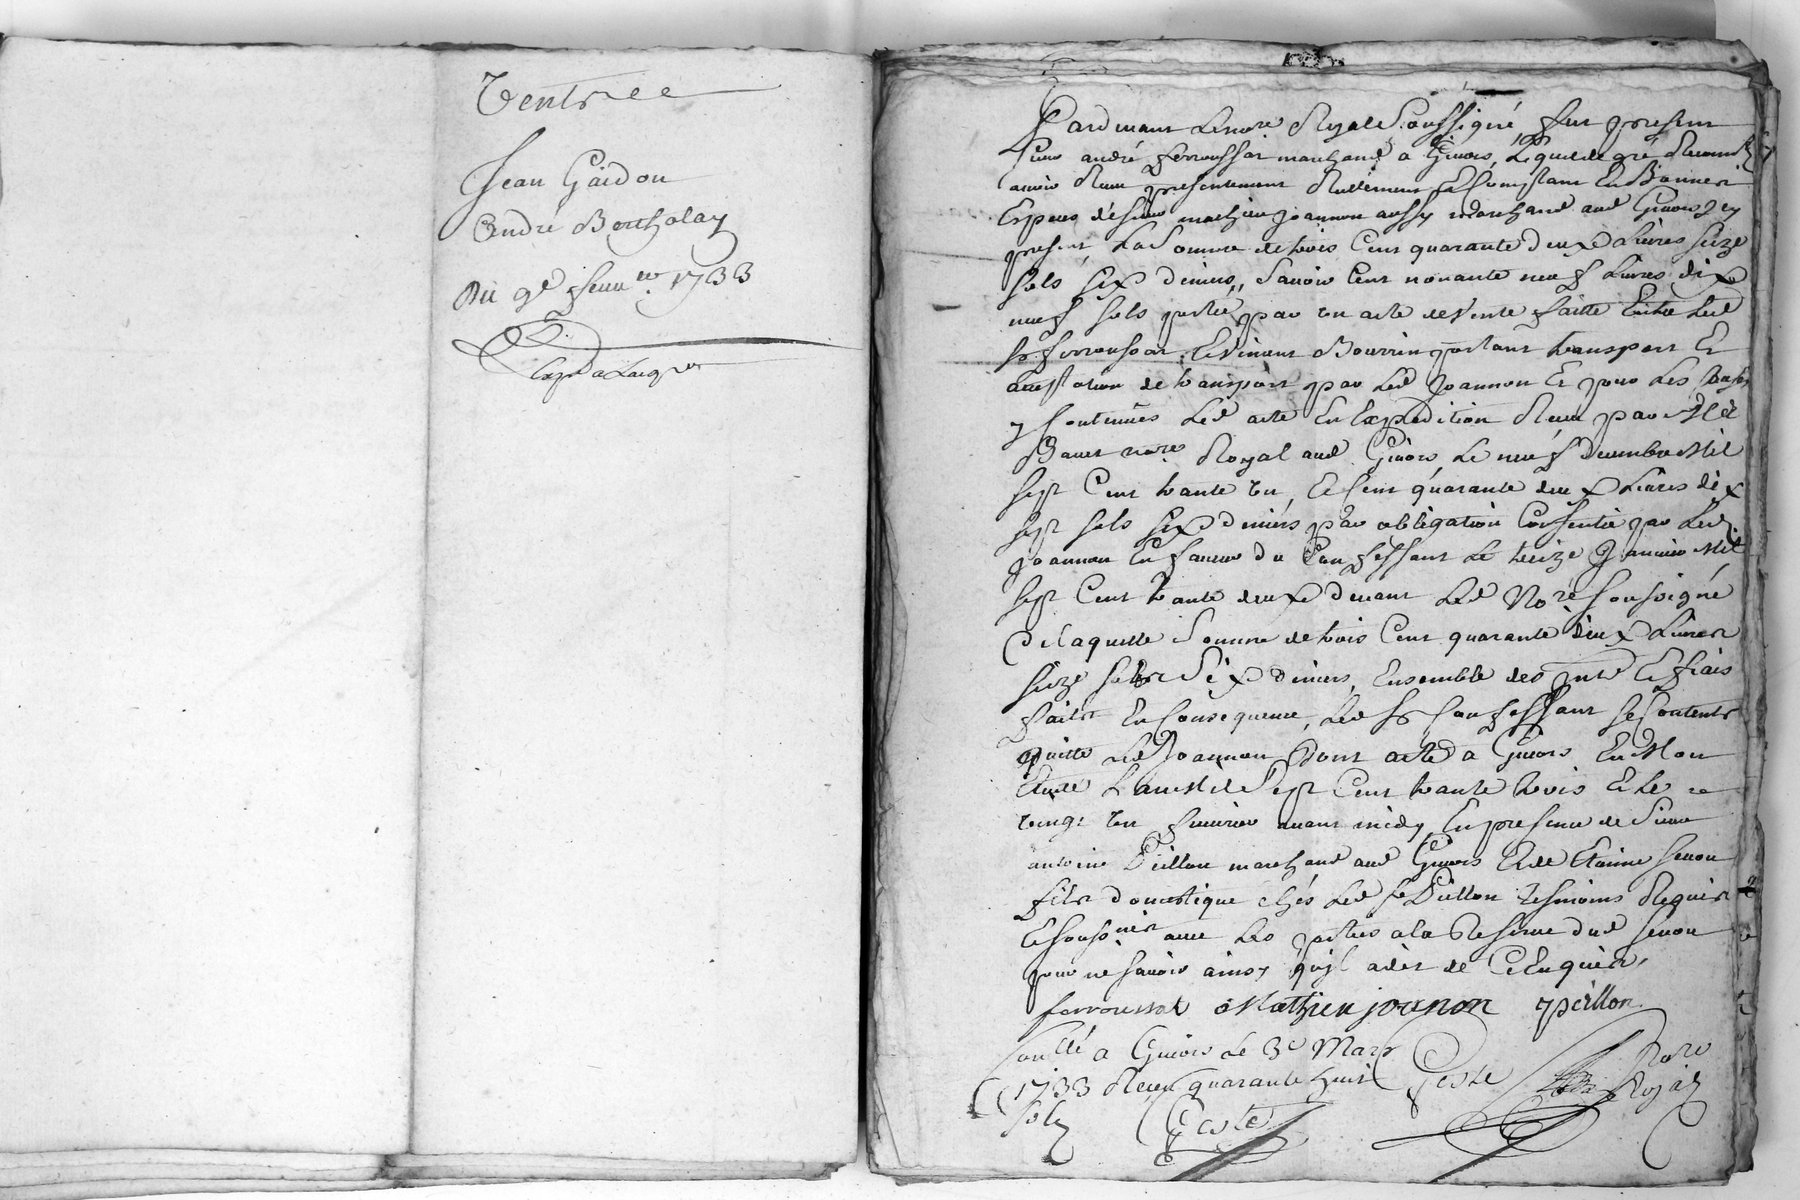 Vente
Jean Gaidon
André Bertholay
Du 9e feuvr 1733
Expd a Lacqr
Pardevant Le nore Royal soussigné fut present
sieur andré ferroussat marchand a Givors, Lequel de gré
avoir Receu presentement Reellement et Comptant En Bonnes
Especes de sieur mathieu joannon aussy marchand aud Givors jcy
present, La somme de trois Cent quarante deux Livres seize
sols six deniers, savoir Cent nonante neuf Livres dix
neuf sols portée par un acte de vente faitte Entre Led
sr ferroussat, Et vincent Bourrin portant transport Et
acceptation de transport par Led joannon Et pour Les Causes
y Contenües Led acte En Expedition Receu par Me
nore Royal aud Givors Le neuf decembre Mil
sept Cent trante un, Et Cent quarante deux Livres dix
sept sols six deniers par obligation Consentie par Led
joannon En faveur du Confessant Le treize Janvier Mil
sept Cent trante deux devant Led Nore soussigné
De laquelle somme de trois Cent quarante deux Livres
seize sols six deniers, Ensemble des Et frais
faits En Consequence, Led sr Confessant se Contente
quitte Led Joannon Dont acte a Givors En Mon
Etude L'an Mil sept Cent trante trois Et Le
vingt un fevrier avant midy En presence de sieur
antoine Peillon marchand aud Givors Et de Etienne senon
fils domestique chés Led sr Peillon tesmoins Requis
Et soussignés avec Les parties a la Reserve dud senon
pour ne savoir ainsy qu'jl a dit de Ce Enquis,
ferroussat Mathieu joanon peillon
Conllé a Givors Le 3e Mars
1733 Receu quarante huit
sols
Geste
Geste
Nore
Royal